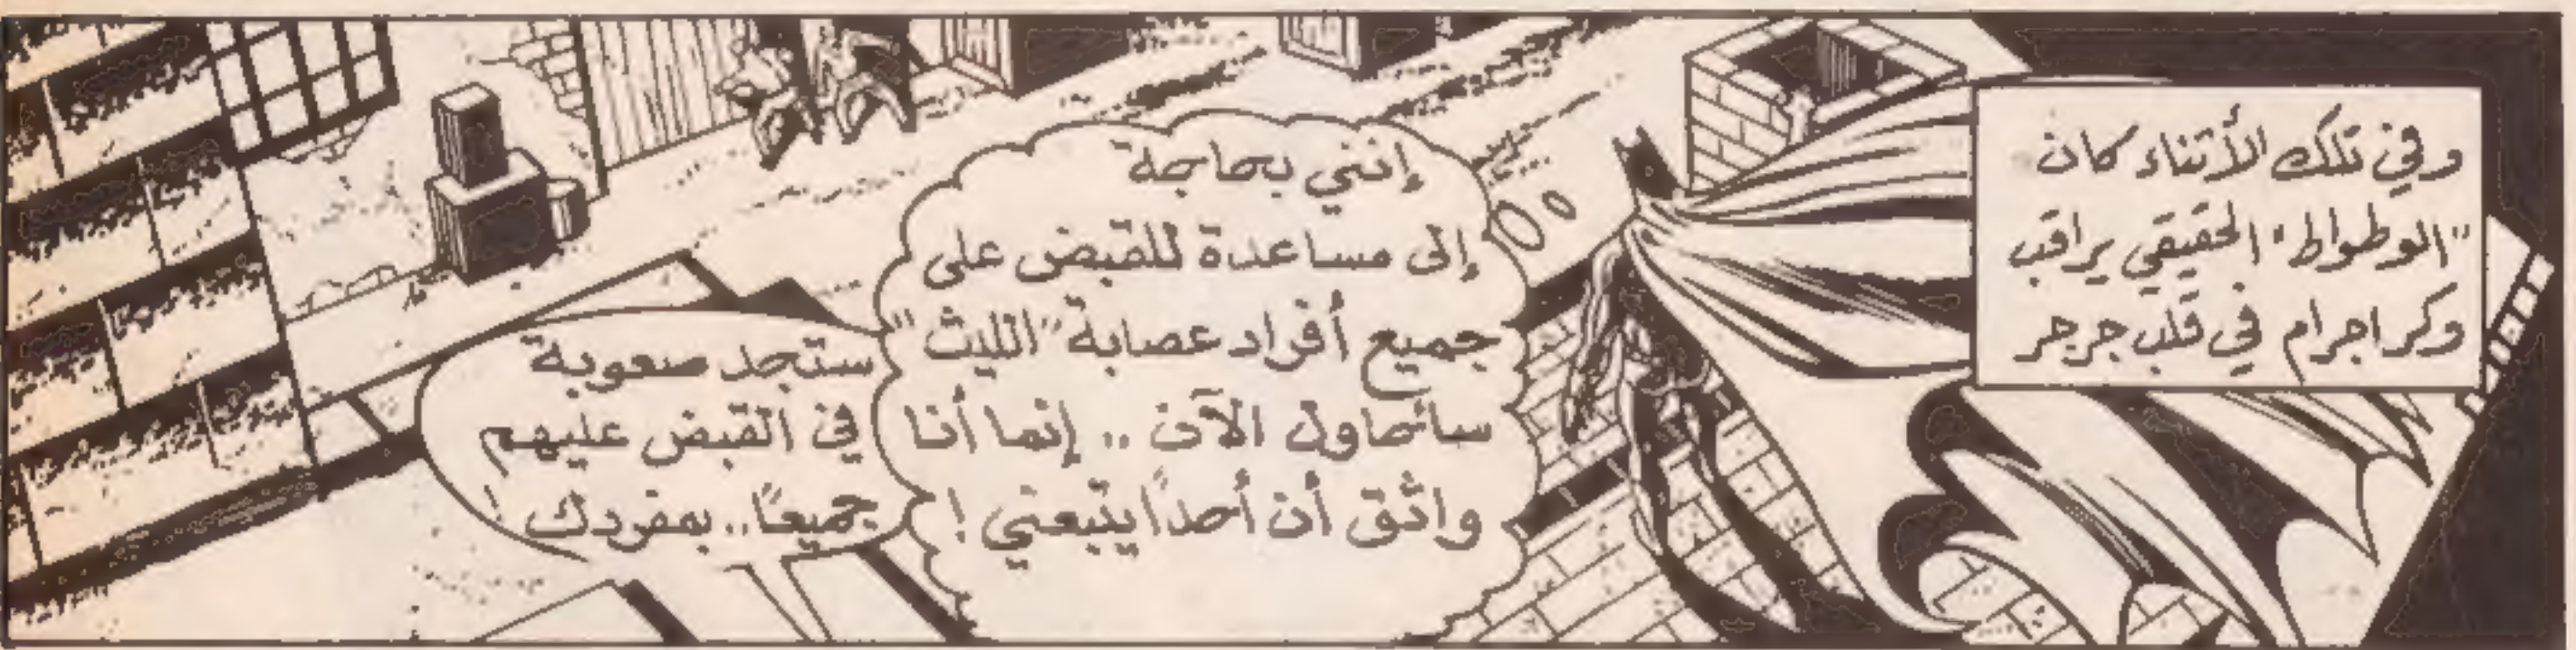 وفي تلك الأثناء كان
"الوطواط" الحقيقي يراقب
وكر اجرام في قلب جرجر
إنني بحاجة
إلى مساعدة للقبض على
جميع أفراد عصابة "الليث"
سأحاول الآن .. إنما أنا
واثق أن أحداً يتبعني !
ستجد صعوبة
في القبض عليهم
جميعًا.. بمفردك !